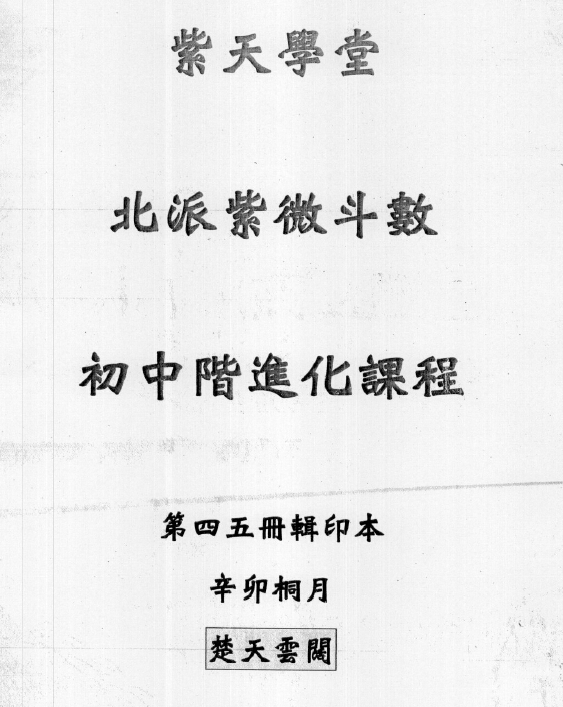 紫天學堂
北派紫微斗數
初中階進化課程
第四五冊輯印本
辛卯桐月
楚天雲闊